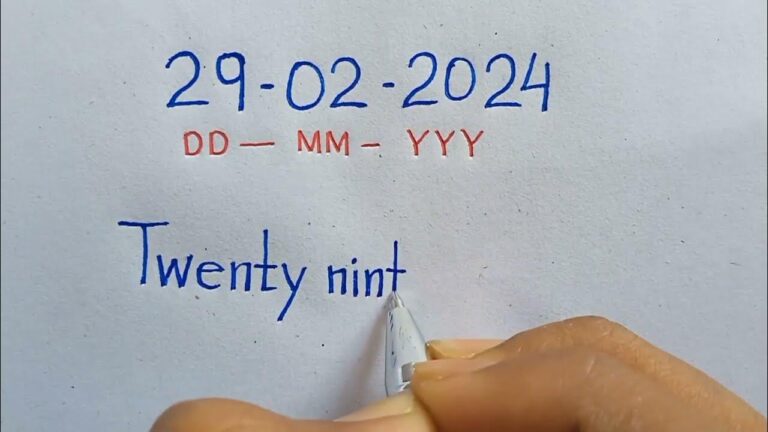 29-02-2024
DD — MM - YYY
Twenty nint